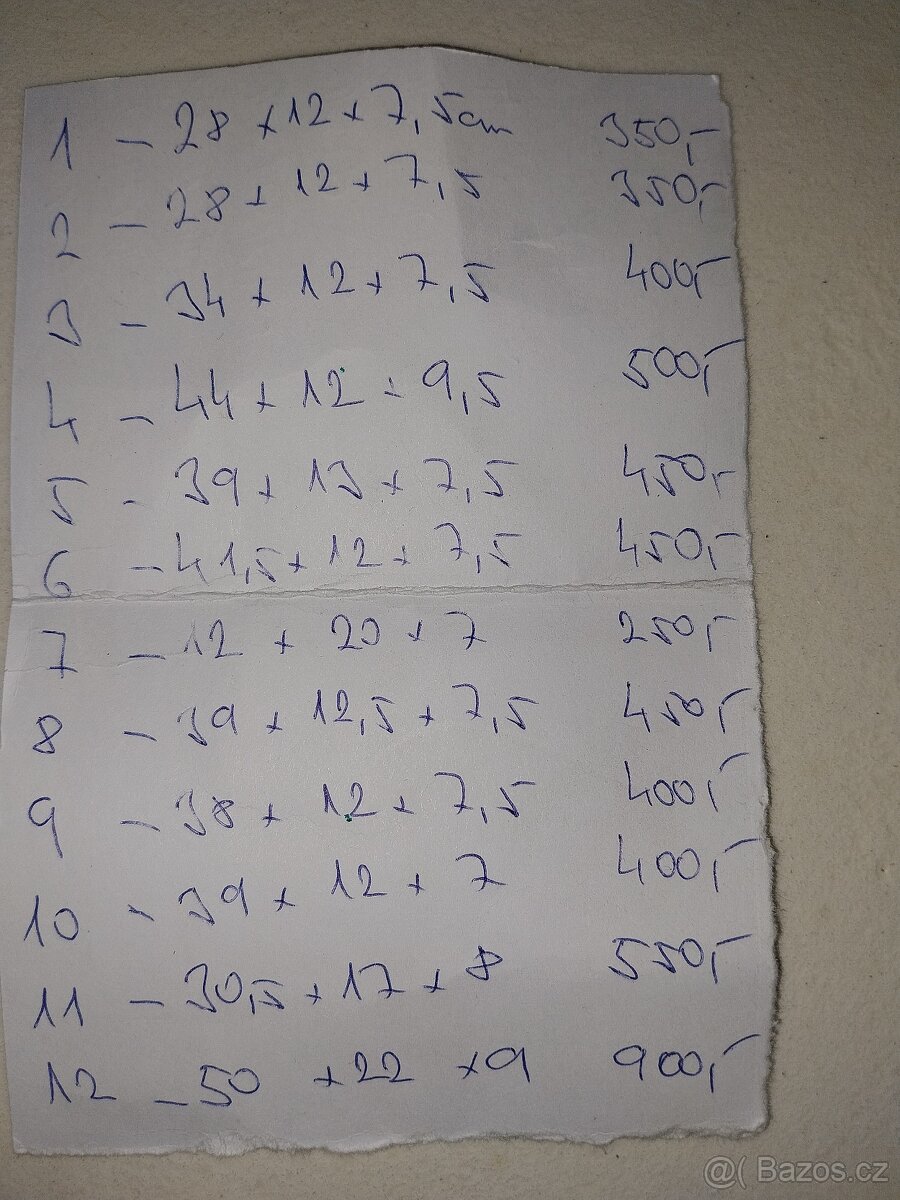 1 - 28 x 12 x 7,5cm 350,-
2 - 28 x 12 x 7,5 350,-
3 - 34 x 12 x 7,5 400,-
4 - 44 x 12 x 9,5 500,-
5 - 39 x 13 x 7,5 450,-
6 - 41,5 x 12 x 7,5 450,-
7 - 12 x 20 x 7 250,-
8 - 39 x 12,5 x 7,5 450,-
9 - 38 x 12 x 7,5 400,-
10 - 39 x 12 x 7 400,-
11 - 30,5 x 17 x 8 550,-
12 - 50 x 22 x 9 900,-
@( Bazos.cz